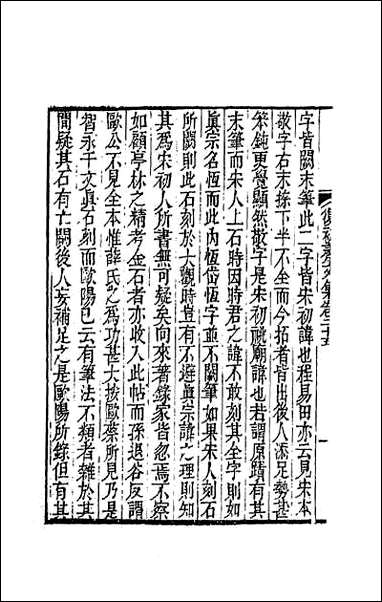 復初齋文集卷二十五
字皆闕末筆此二字皆宋初諱也程易田亦云見宋本
敬字右末捺下半不全而今拓者皆出後人添足勢甚
笨鈍更覺顯然敬字是宋初祧廟諱也若謂原蹟有其
末筆而宋人上石時因時君之諱不敢刻其全字則如
眞宗名恆而此內恆岱恆字並不闕筆如果宋人刻石
所闕則此石刻於大觀時豈有不避眞宗諱之理則知
其爲宋初人所書無可疑矣向來著錄家皆忽焉不察
如顧亭林之精考金石者亦收入此帖而孫退谷反謂
歐公不見全本惟薛氏之爲功甚大按歐蔡所見乃是
智永千文眞石刻而歐陽已云有筆法不類者雜於其
間疑其石有亡闕後人妄補足之是歐陽所錄但有其